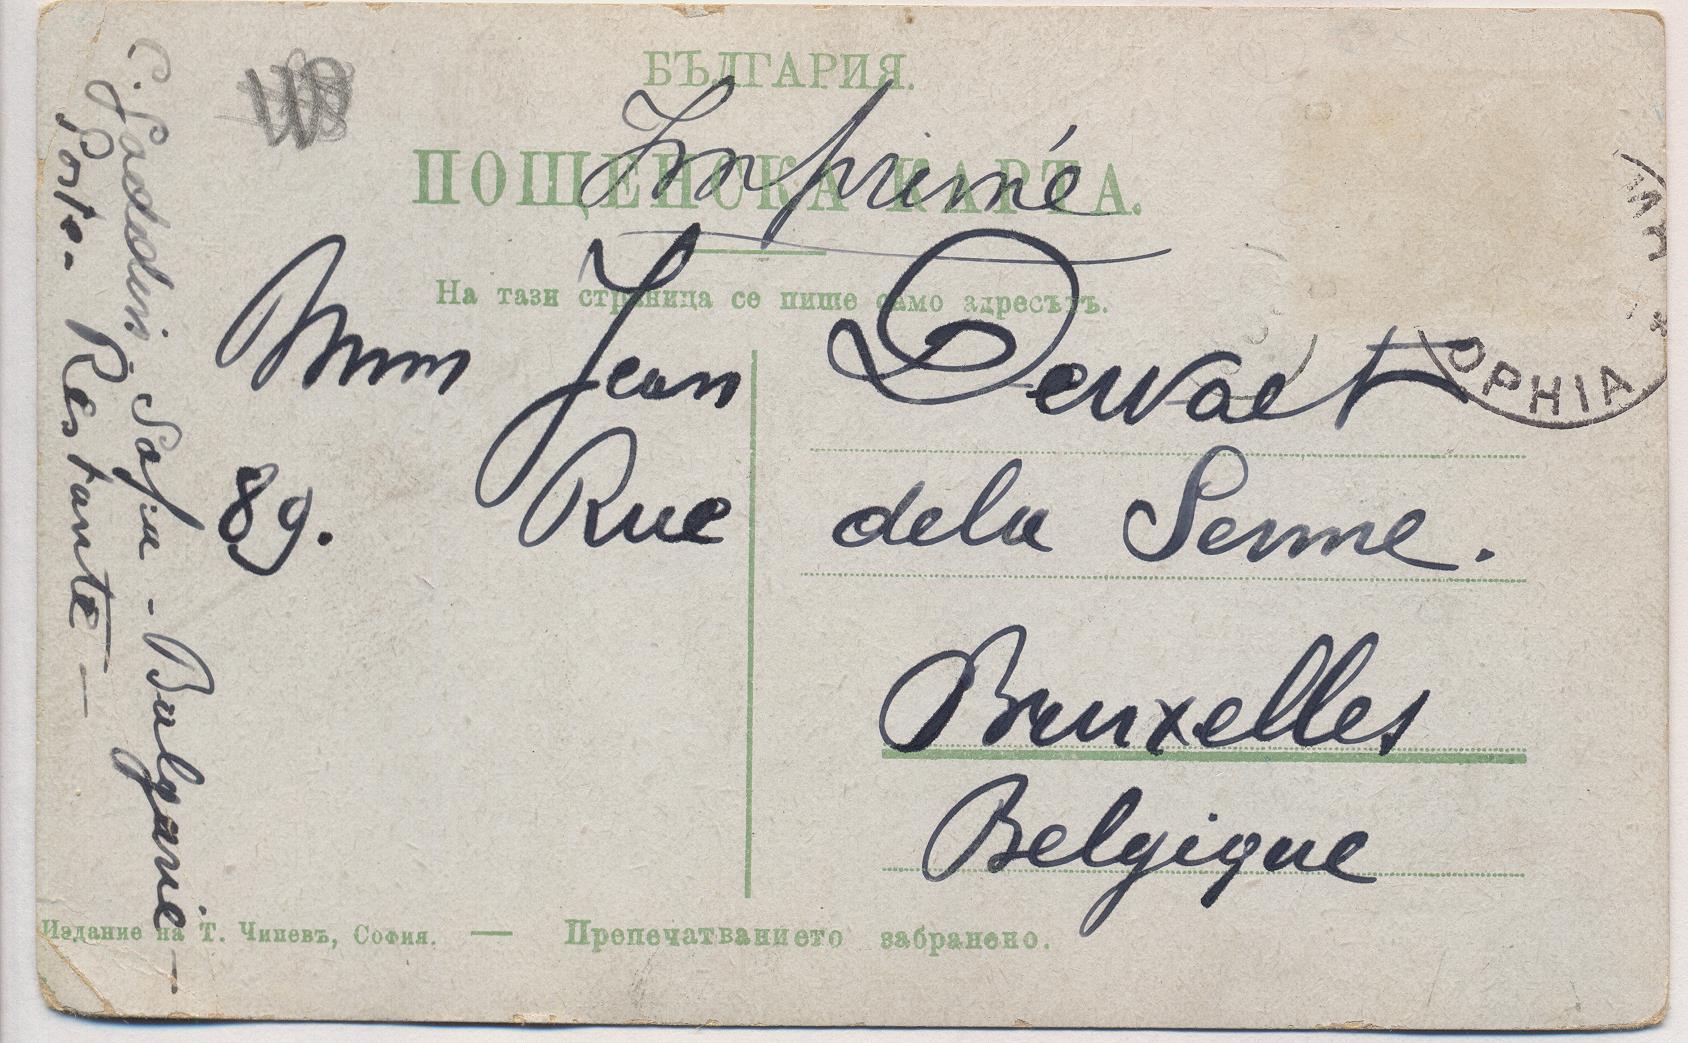 БЪЛГАРИЯ.
ПОЩЕНСКА КАРТА.
Imprimé
На тази страница се пише само адресътъ.
OPHIA
Jean Dewaet
89. Rue de la Senne.
Bruxelles
Belgique
Sofia - Bulgarie -
Poste - Restante -
Издание на Т. Чипевъ, София. — Препечатванието забранено.